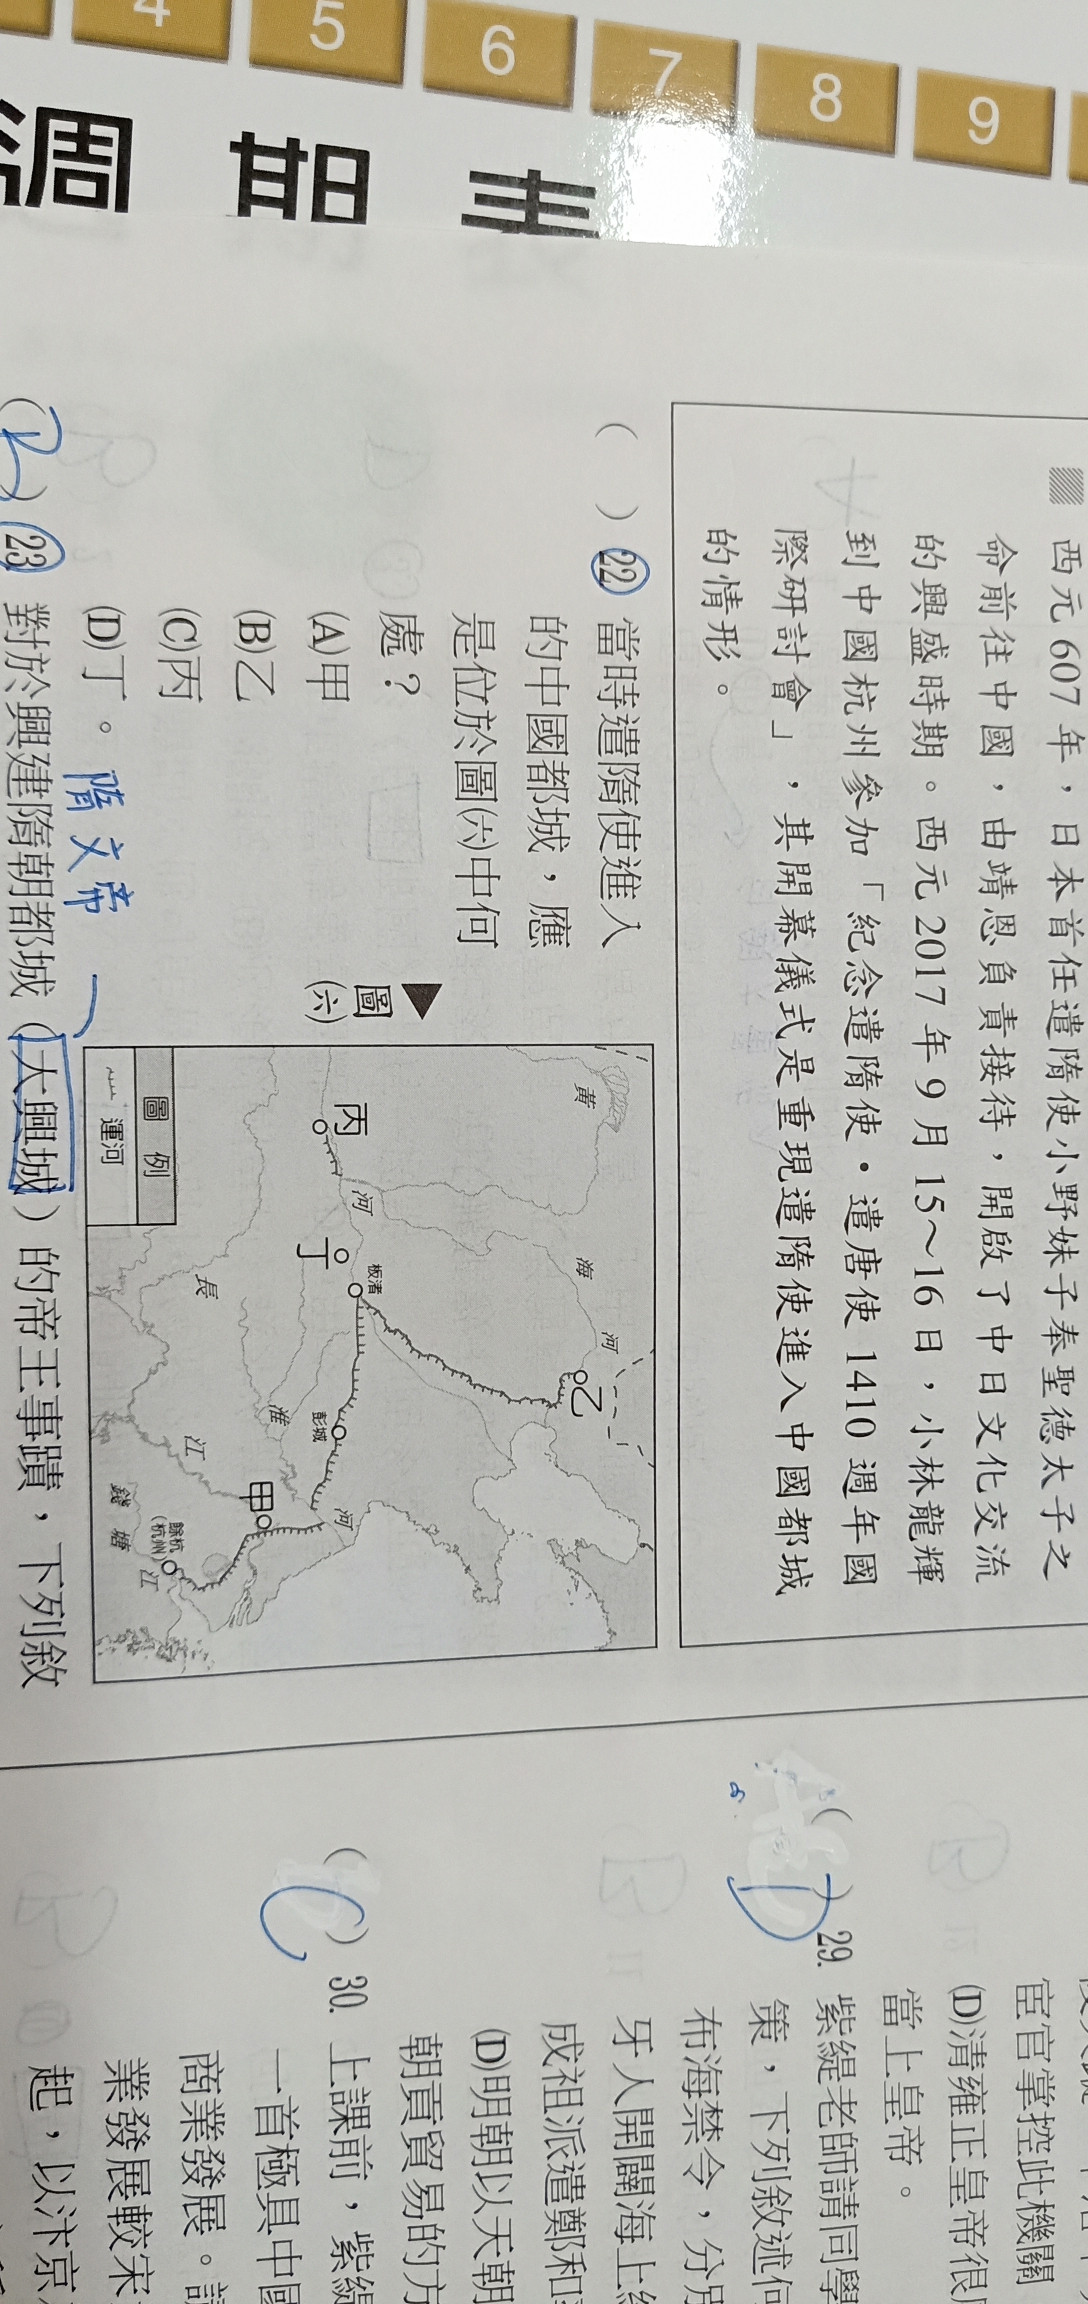 4 5 6 7 8 9
週期表
西元607年，日本首任遣隋使小野妹子奉聖德太子之
命前往中國，由靖恩負責接待，開啟了中日文化交流
的興盛時期。西元2017年9月15～16日，小林龍輝
到中國杭州參加「紀念遣隋使・遣唐使1410週年國
際研討會」，其開幕儀式是重現遣隋使進入中國都城
的情形。
（　）22 當時遣隋使進入
的中國都城，應
是位於圖(六)中何
處？
(A)甲
(B)乙
(C)丙
(D)丁。
隋文帝
▲圖(六)
黃
河
海
河
乙
丙
丁
板渚
彭城
淮
河
長
江
甲
餘杭
(杭州)
錢塘江
圖例
運河
（　）23 對於興建隋朝都城（大興城）的帝王事蹟，下列敘
宦官掌控此機關
(D)清雍正皇帝很
當上皇帝。
（D）29. 紫緹老師請同學
策，下列敘述何
布海禁令，分別
牙人開闢海上
成祖派遣鄭和
(D)明朝以天朝
朝貢貿易的方
（C）30. 上課前，紫緹
一首極具中國
商業發展。
業發展較宋
起，以汴京